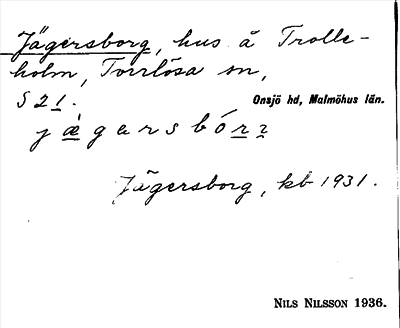 Jägersborg, hus å Trolle-
holm, Torrlösa sn,
S 21.
Onsjö hd, Malmöhus län.
j ä g e r s b ó r r
Jägersborg, kb 1931.
NILS NILSSON 1936.